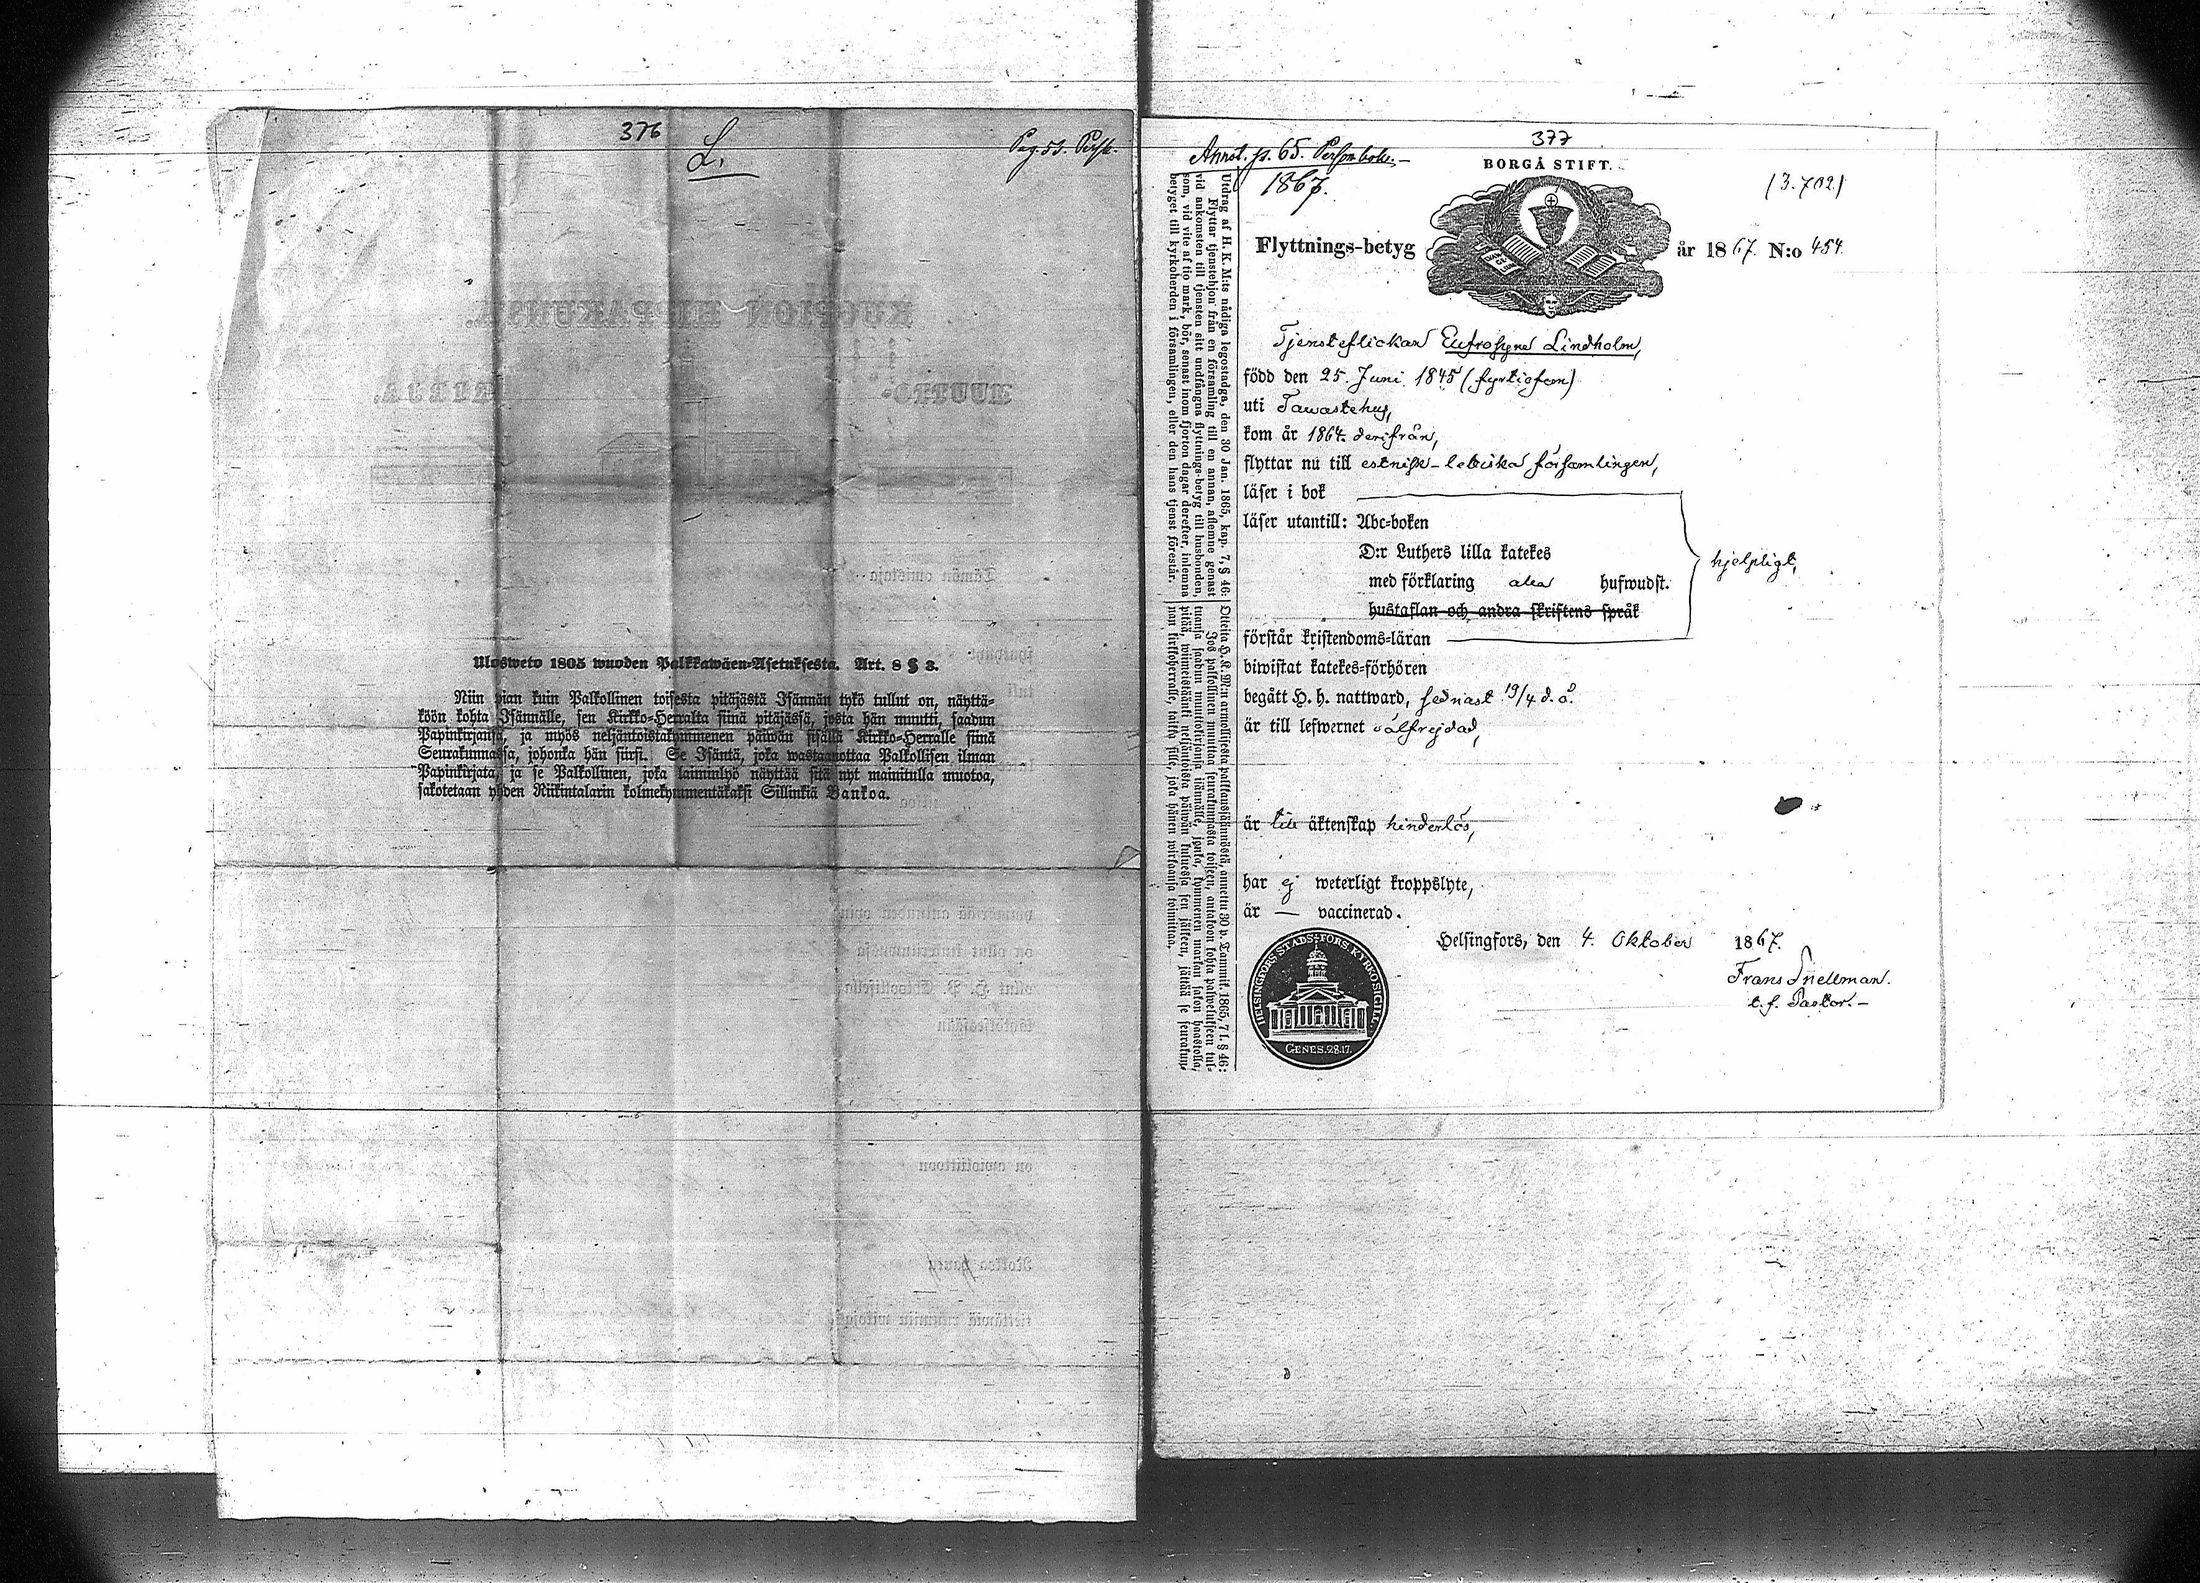 376
L.
Pag. 51. Persb.
Ulosweto 1805 wuoden Palkkawäen-Asetuksesta. Art. 8 § 3.
Niin pian kuin Palkollinen toisesta pitäjästä Isännän tykö tullut on, näyttä-
köön kohta Isännälle, sen Kirkko-Herralta siinä pitäjässä, josta hän muutti, saadun
Papinkirjansa, ja myös neljäntoistakymmenen päiwän sisällä Kirkko-Herralle siinä
Seurakunnassa, johonka hän siirsi. Se Isäntä, joka wastaanottaa Palkollisen ilman
Papinkirjata, ja se Palkollinen, joka laiminlyö näyttää sitä nyt mainitulla muotoa,
sakotetaan yhden Riikintalarin kolmekymmentäkaksi Sillinkiä Bankoa.
377
Annot. p. 65. Personboken.—
1867.
BORGÅ STIFT.
(3.702)
Flyttnings-betyg
år 1867. N:o 454.
Tjensteflickan Eufrosyne Lindholm,
född den 25. Juni 1845 (fyrtiofem)
uti Tawastehus,
kom år 1864. derifrån,
flyttar nu till estnisk-lettiska församlingen,
läser i bok
läser utantill: Abc-boken
D:r Luthers lilla katekes
med förklaring alla hufwudst.
hustaflan och andra skriftens språk
hjelpligt,
förstår kristendoms-läran
biwistat katekes-förhören
begått H. h. nattward, sednast 19/4 d. å.
är till lefwernet välfrejdad,
är till äktenskap hinderlös,
har ej weterligt kroppslyte,
är — vaccinerad.
Helsingfors, den 4. Oktober 1867.
Frans Snellman.
t. f. Pastor.—
HELSINGFORS STADS-FÖRS. KYRKOSIGILL.
GENES. 28.17.
Utdrag af H. K. M:ts nådiga legostadga, den 30 Jan. 1865, kap. 7, § 46:
Flyttar tjenstehjon från en församling till en annan, aflemne genast
vid ankomsten till tjensten sitt undfångna flyttnings-betyg till husbonden,
som, vid vite af tio mark, bör, senast inom fjorton dagar derefter, inlemna
betyget till kyrkoherden i församlingen, eller den hans tjenst förestår.
Otteita H. K. M:n armollisesta palkkaussäännöstä, annettu 30 p. Tammik. 1865, 7 l. § 46:
Jos palkollinen muuttaa seurakunnasta toiseen, antakoon kohta palwelukseen tul-
tuansa saadun muuttokirjansa isännälle, jonka, kymmenen markan sakon haastolla,
pitää, wiimeistäänki neljäntoista päiwän kuluessa sen jälkeen, jättää se seurakun-
nan kirkkoherralle, taikka sille, joka hänen wirkaansa toimittaa.